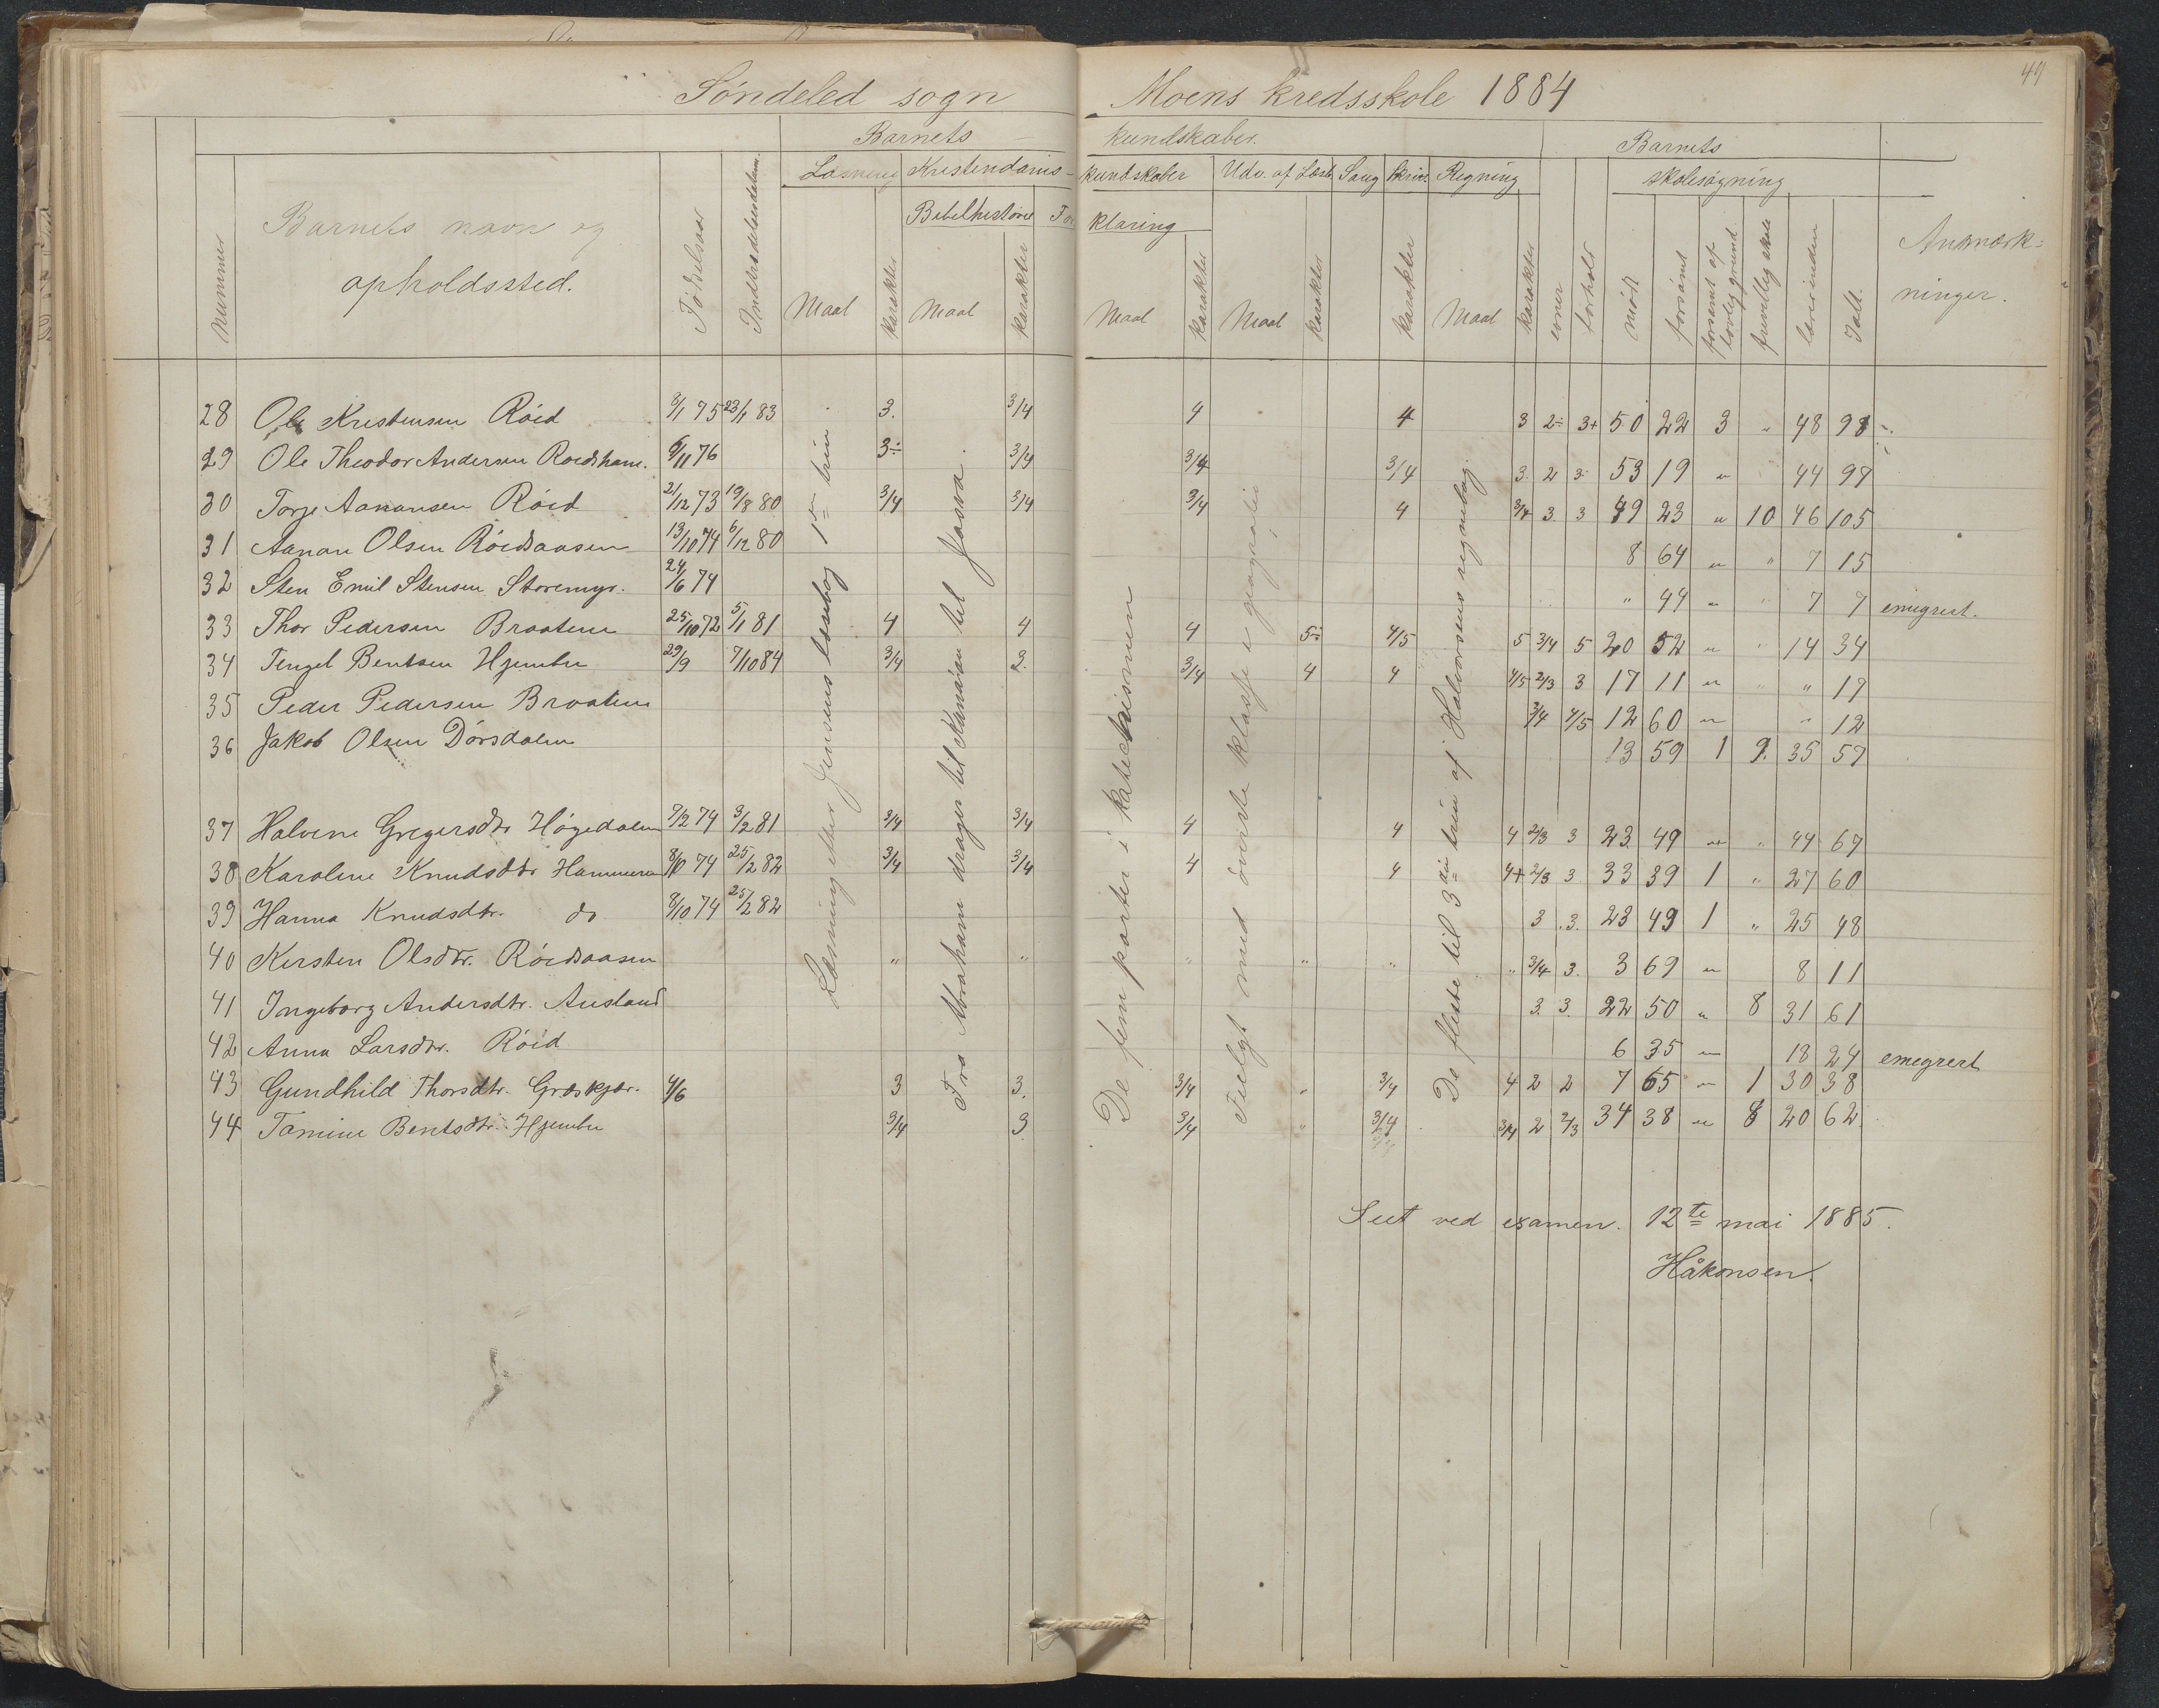 49
Söndeled sogn Moens kredsskole 1884
Barnets kundskaber. Barnets
Læsning Kristendoms- kundskaber Udv. af Læseb. Sang Skriv. Regning skolesögning
Bibelhistorie For klaring
Nummer Barnets navn og opholdssted. Födselsaar Indtrædelsesdatum. Maal Karakter Maal Karakter Maal Karakter Maal Karakter Karakter Maal Karakter evner forhold mödt forsömt forsömt af lovlig grund frivillig skole lærerinden Ialt. Anmærk- ninger.
28 Ole Kristensen Röed 3/1 75 23/1 83 3. 3/4 4 4 3 2÷ 3+ 50 22 3 „ 48 98
29 Ole Theodor Andersen Roedshavn. 6/11 76 3÷ 3/4 3/4 3/4 3. 2 3 53 19 „ 44 97
30 Torje Aanansen Röed 21/12 73 19/8 80 3/4 3/4 3/4 4 3/4 3. 3 49 23 „ 10 46 105
31 Aanan Olsen Röedsaasen 13/10 74 6/12 80 8 64 „ „ 7 15
32 Sten Emil Stensen Storemyr. 24/6 74 „ 44 „ „ 7 7 emigrert.
33 Thor Pedersen Braaten 25/10 72 5/1 81 4 4 4 5÷ 4/5 5 3/4 5 20 52 „ „ 14 34
34 Tengel Bentsen Hjembu 29/9 7/10 84 3/4 3. 3/4 4 4 4/5 2/3 3 17 11 „ „ „ 17
35 Peder Pedersen Braaten 3/4 4/5 12 60 „ „ 12
36 Jakob Olsen Dörsdalen 13 59 1 9. 35 57
37 Halvine Gregersdtr Högedalen 9/2 74 3/2 81 3/4 3/4 4 4 4 2/3 3 23. 49 „ „ 44 67
38 Karoline Knudsdtr Hammeren 8/10 74 25/2 82 3/4 3/4 4 4 4+ 2/3 3 33 39 1 „ 27 60
39 Hanna Knudsdtr. do 8/10 74 25/2 82 3 .3. 23 49 1 „ 25 48
40 Kirsten Olsdtr. Röedsaasen „ „ „ „ „ „ 3/4 3. 3 69 „ 8 11
41 Ingeborg Andersdtr. Ausland 3. 3. 22 50 „ 8 31 61
42 Anna Larsdtr. Röed 6 35 „ 18 24 emegrert
43 Gundhild Thorsdtr. Græskjær. 4/6 3 3. 3/4 „ 3/4 4 2 2 7 65 „ 1 30 38
44 Tomine Bentsdtr. Hjembu 3/4 3 3/4 „ 3/4 3/4 2 2/3 34 38 „ 8 20 62
Læsning efter Jensens læsebog 1ste trin
Fra Abraham drager til Kanaan til Josva.
De fem parter i katechismen
Fulgt med överste klasse i geografie
De fleste til 3die trin af Halvorsens regnebog.
Seet ved examen. 12te mai 1885.
Håkonsen.